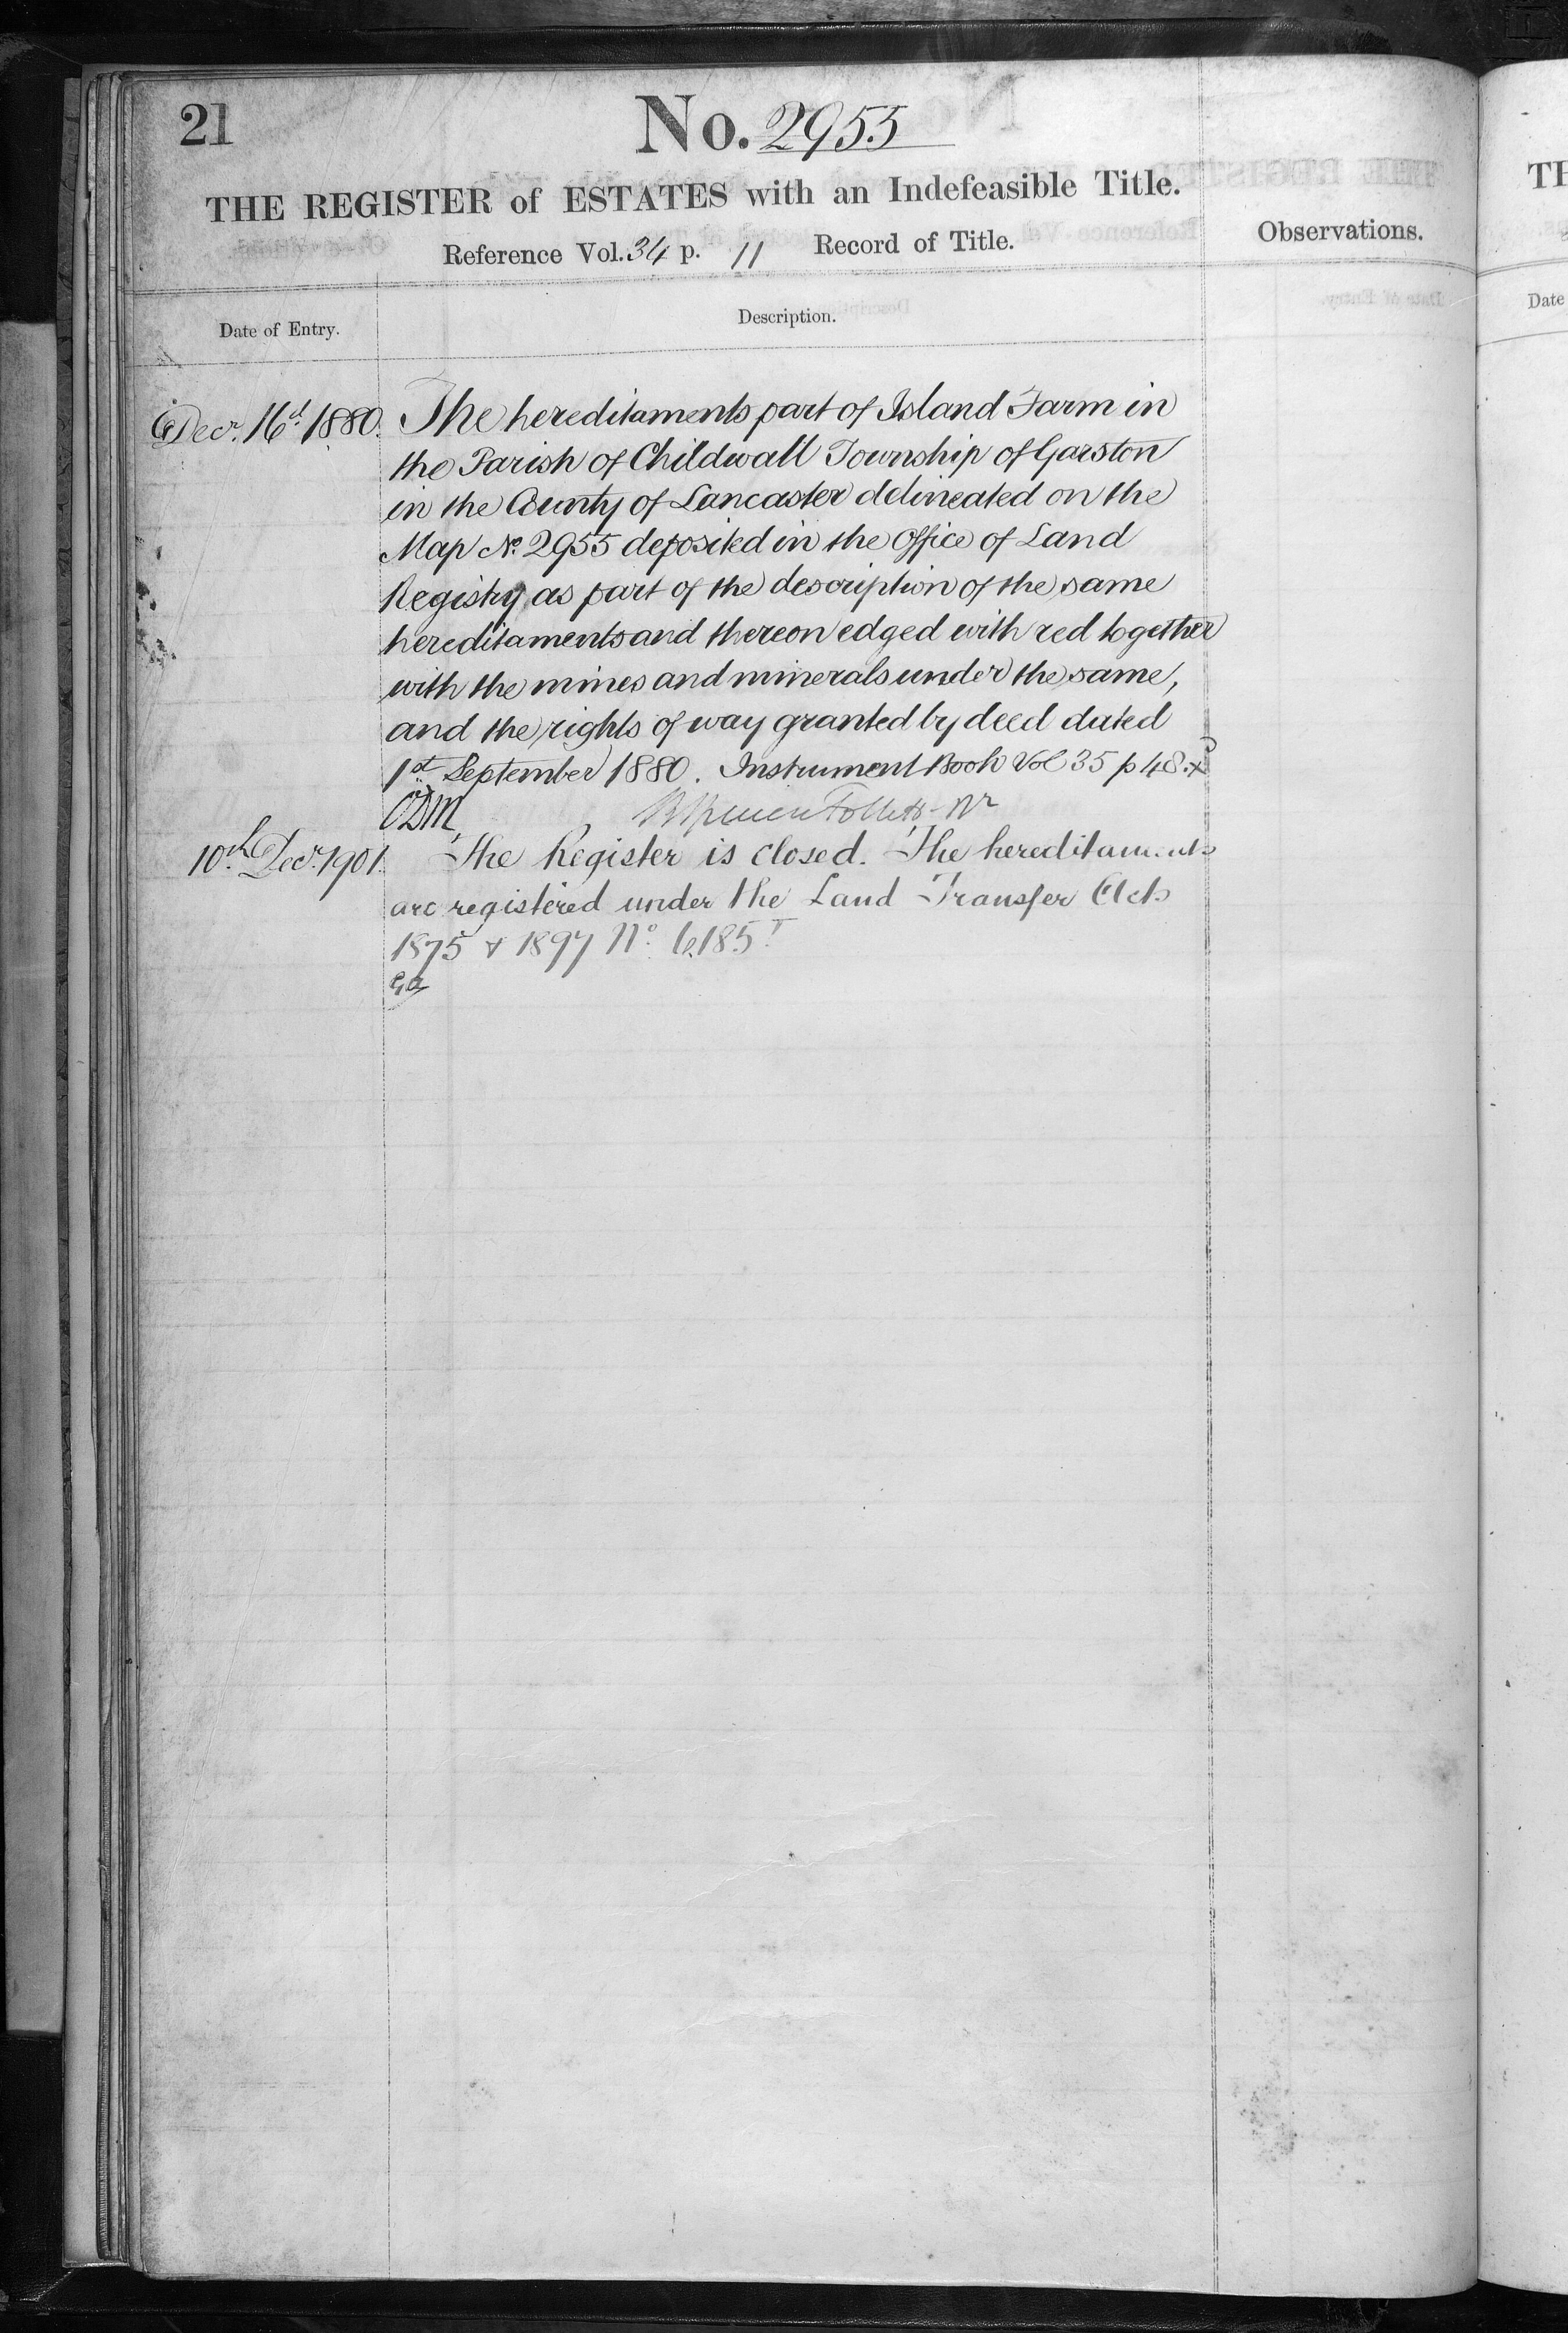 21
No. 2955
THE REGISTER of ESTATES with an Indefeasible Title.
Reference Vol. 34 p. 11 Record of Title.
Observations.
Date of Entry.
Description.
Decr. 16th 1880.
The hereditaments part of Island Farm in
the Parish of Childwall Township of Garston
in the County of Lancaster delineated on the
Map No. 2955 deposited in the Office of Land
Registry as part of the description of the same
hereditaments and thereon edged with red together
with the mines and minerals under the same,
and the rights of way granted by deed dated
1st September 1880. Instrument Book Vol 35 p 48.
Follett
10th Decr. 1901.
The Register is closed. The hereditaments
are registered under the Land Transfer Acts
1875 & 1897 No. 6185
TH
Date